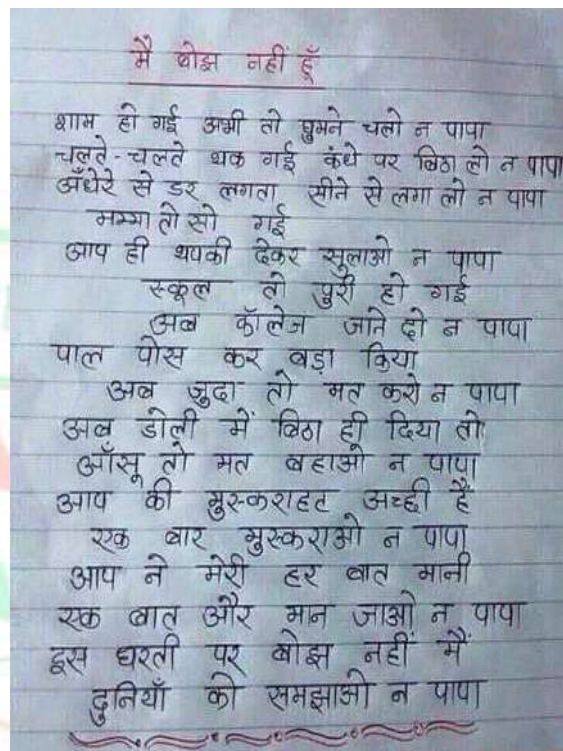 मै बोझ नहीं हूँ
शाम हो गई अभी तो घुमने चलो न पापा
चलते-चलते थक गई कंधे पर बिठा लो न पापा
अँधेरे से डर लगता सीने से लगा लो न पापा
मम्मा तो सो गई
आप ही थपकी देकर सुलाओ न पापा
स्कूल तो पुरी हो गई
अब कॉलेज जाने दो न पापा
पाल पोस कर बड़ा किया
अब जुदा तो मत करो न पापा
अब डोली में बिठा ही दिया तो
आँसू तो मत बहाओ न पापा
आप की मुस्कराहट अच्छी हैं
एक बार मुस्कराओ न पापा
आप ने मेरी हर बात मानी
एक बात और मान जाओ न पापा
इस धरती पर बोझ नहीं मैं
दुनियाँ को समझाओ न पापा